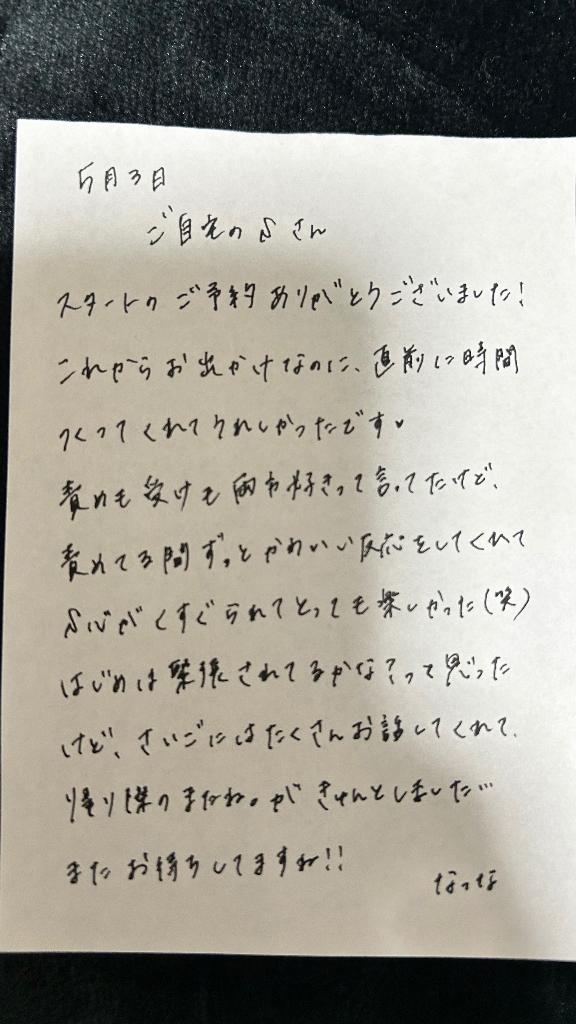 5月3日
ご自宅のSさん
スタートのご予約ありがとうございました!
これからお出かけなのに、直前に時間
つくってくれてうれしかったです♥
責めも受けも両方好きって言ってたけど、
責めてる間ずっとかわいい反応をしてくれて
S心がくすぐられてとっても楽しかった(笑)
はじめは緊張されてるかな?って思った
けど、さいごにはたくさんお話してくれて、
帰り際のまたね。がきゅんとしました…
またお待ちしてますね!!
なつな